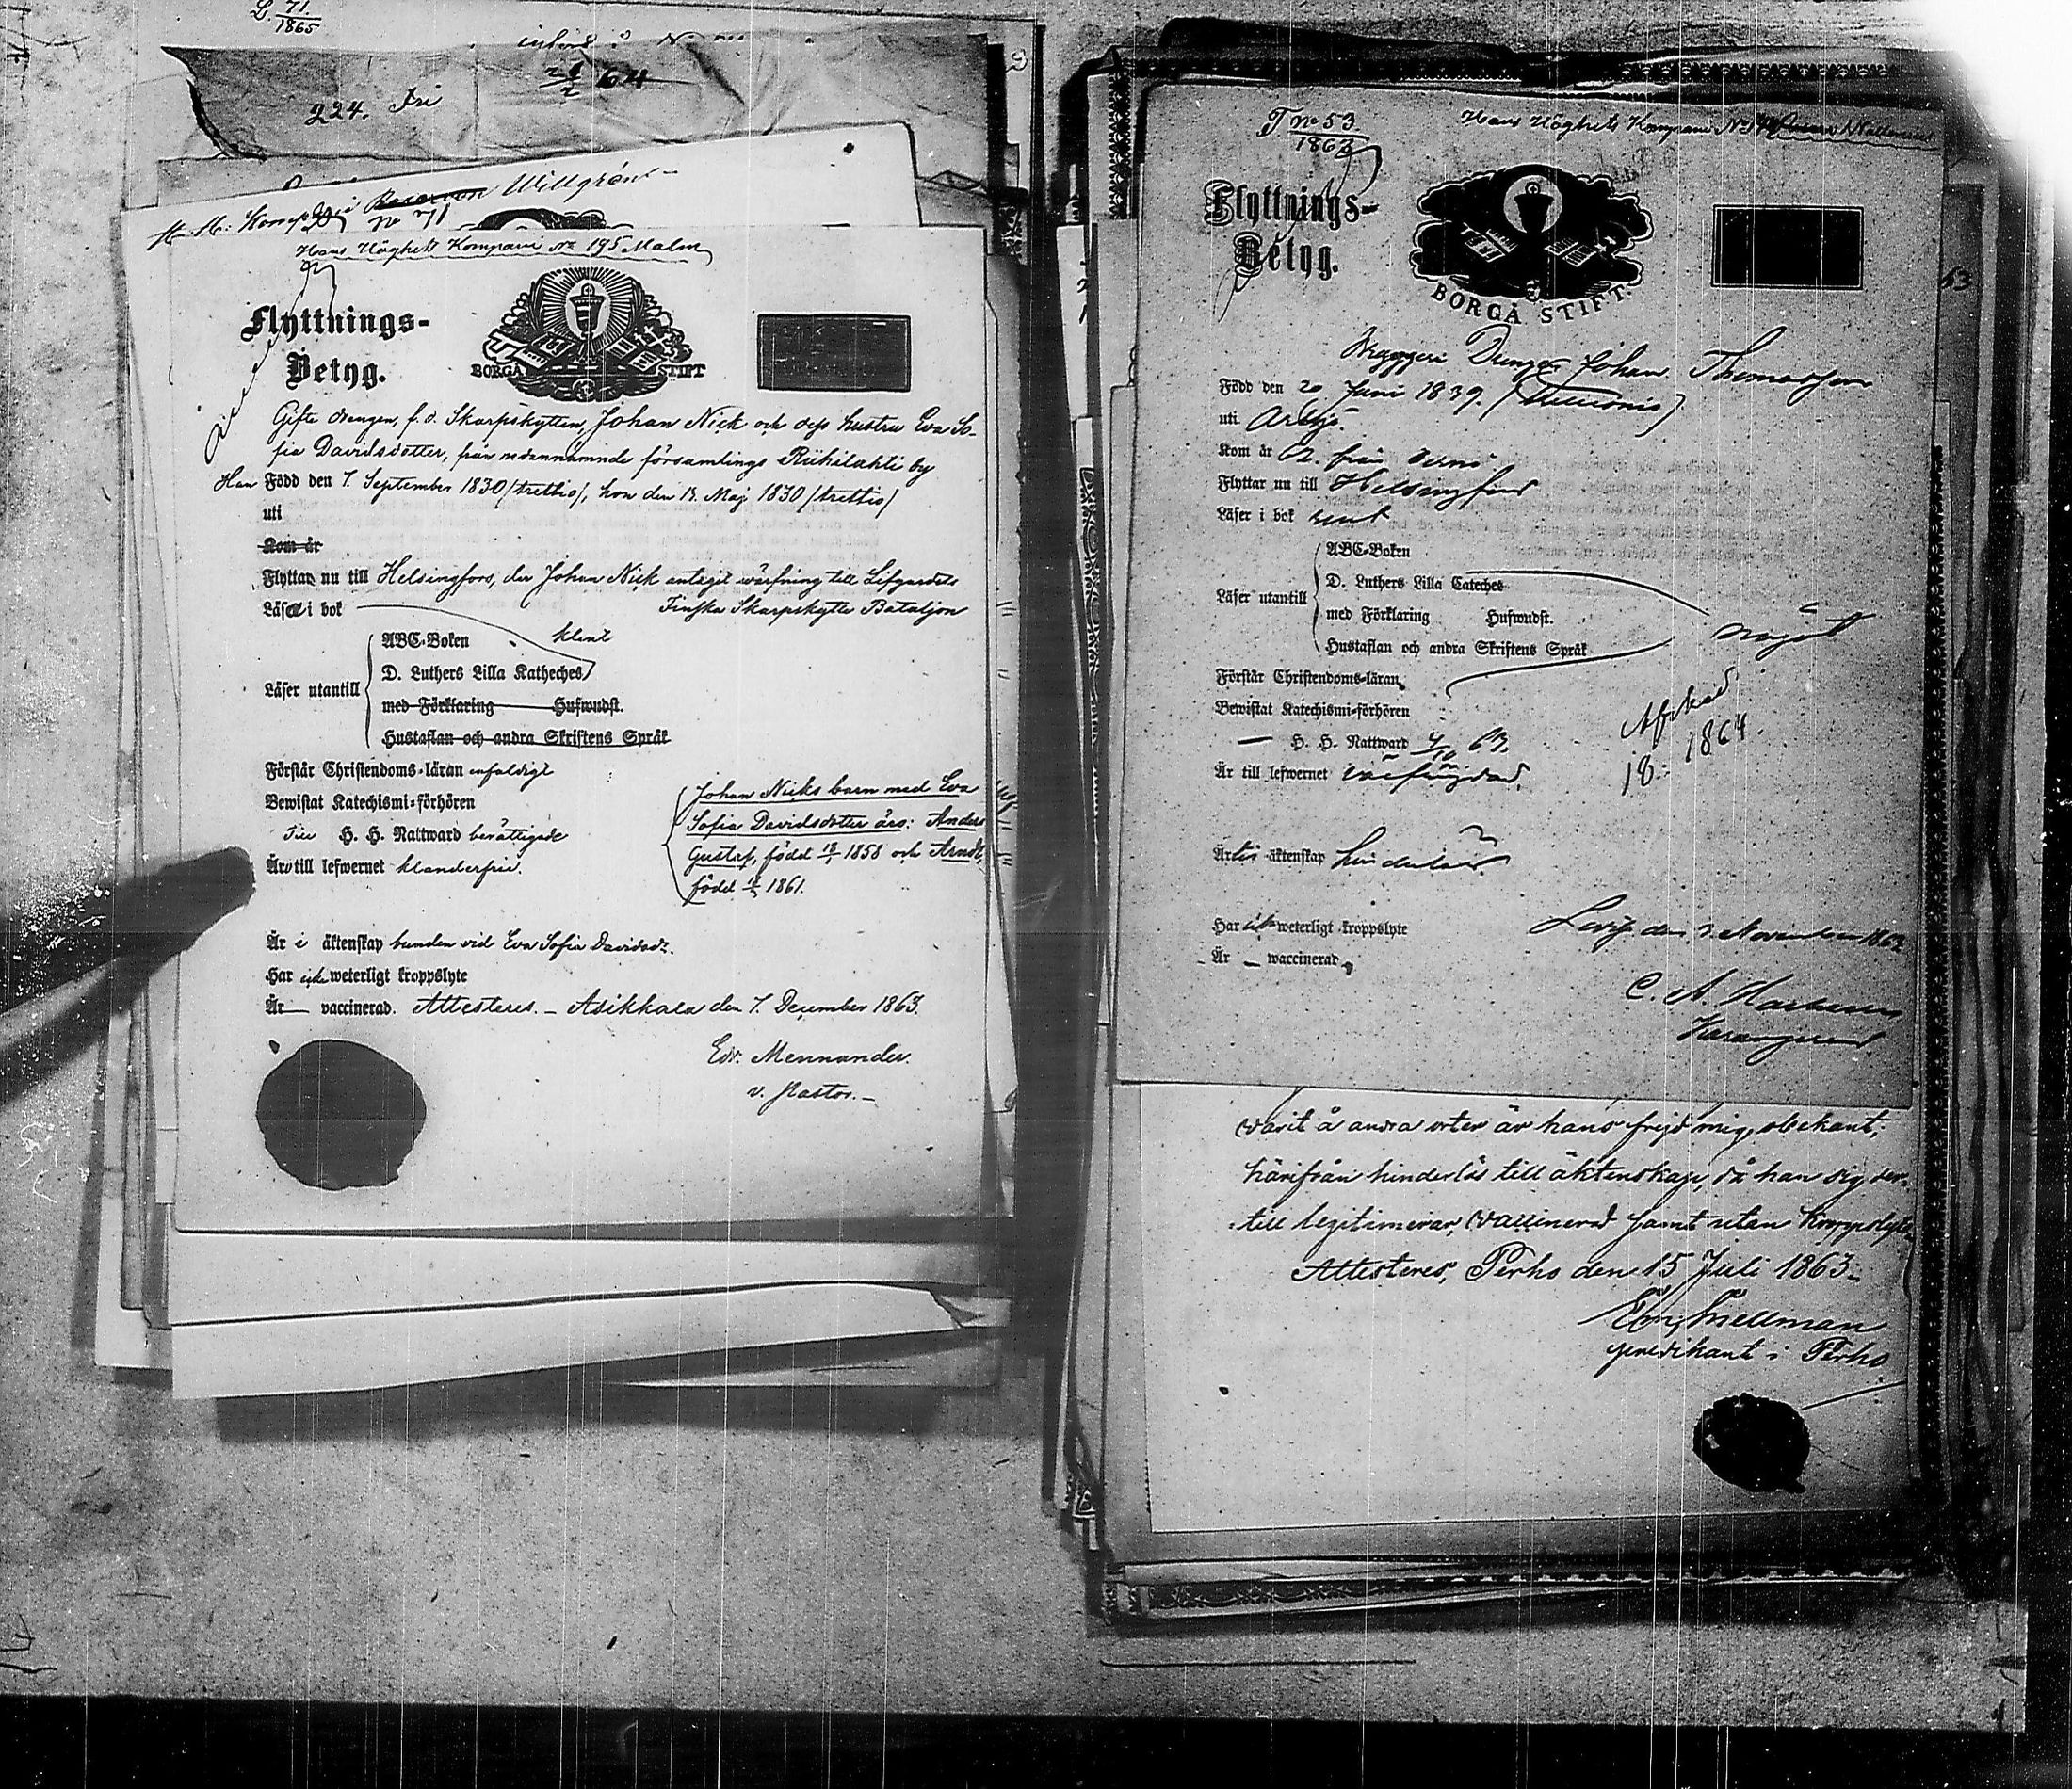 L. 71.
1865
införd
64
224. Fri
Willgrén
No 71
Hans Höghets Kompani No 195 Malm
Flyttnings-
Betyg.
BORGÅ STIFT
Gifte drengen, f.d. Skarpskytten, Johan Nick och dess hustru Eva So-
fia Davidsdotter, från nedannämnde församlings Riihilahti by
Han Född den 7. September 1830 (trettio), hon den 13. Maj 1830 (trettio)
uti
Kom år
Flyttar nu till Helsingfors, der Johan Nick antagit värfning till Lifgardets
Finska Skarpskytte Bataljon
Läser i bok
Läser utantill
ABC-Boken klent
D. Luthers Lilla Katheches
med Förklaring Hufwudst.
Hustaflan och andra Skriftens Språk
Förstår Christendoms-läran enfaldigt
Bewistat Katechismi-förhören
Till H. H. Nattward berättigade
Äro till lefwernet klanderfrie.
Johan Nicks barn med Eva
Sofia Davidsdotter äro: Anders
Gustaf, född 1858 och Arndt,
född 1861.
Är i äktenskap bunden vid Eva Sofia Davidsdr.
Har icke weterligt kroppslyte
Är vaccinerad. Attesteres. – Asikkala den 7. December 1863.
Edv. Mennander.
v. Pastor. –
T No 53
1863
Hans Höghets Kompani No
Flyttnings-
Betyg.
BORGÅ STIFT.
Johan Thomasson
Född den 20 Juni 1839.
uti Artsjö.
Kom år 62. från
Flyttar nu till Helsingfors
Läser i bok rent
Läser utantill
ABC-Boken
D. Luthers Lilla Cateches
med Förklaring Hufwudst.
Hustaflan och andra Skriftens Språk
något
Förstår Christendoms-läran
Bewistat Katechismi-förhören
H. H. Nattward 4/10 63.
Är till lefwernet
Afsked
18 1864.
Är till äktenskap hinderlös
Har icke weterligt kroppslyte
Är – waccinerad
den November 1863
C. A.
varit å andra orter är hans frejd mig obekant;
härifrån hinderlös till äktenskap, då han sig der-
till legitimerar, vaccinerad samt utan kroppslyte
Attesteres, Perho den 15 Juli 1863.
Snellman
predikant i Perho